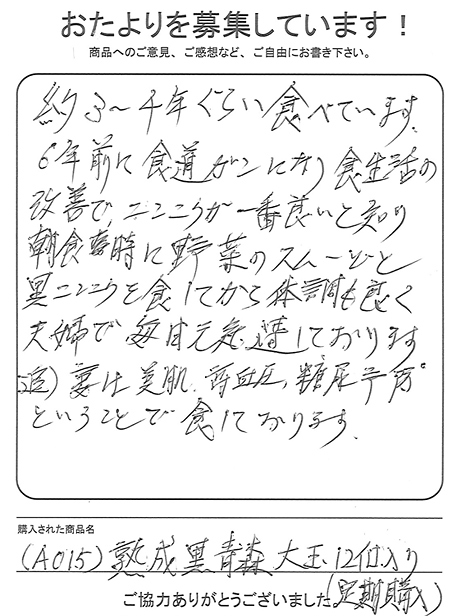 おたよりを募集しています！
商品へのご意見、ご感想など、ご自由にお書き下さい。
約3～4年ぐらい食べています。
6年前に食道ガンになり食生活の
改善で、ニンニクが一番良いと知り
朝食時に野菜のスムージーと
黒ニンニクを食してから体調も良く
夫婦で毎日元気過しております
追)妻は美肌、高血圧、糖尿予防
ということで食しております。
購入された商品名
(A015)熟成黒青森大玉12個入り
(定期購入)
ご協力ありがとうございました